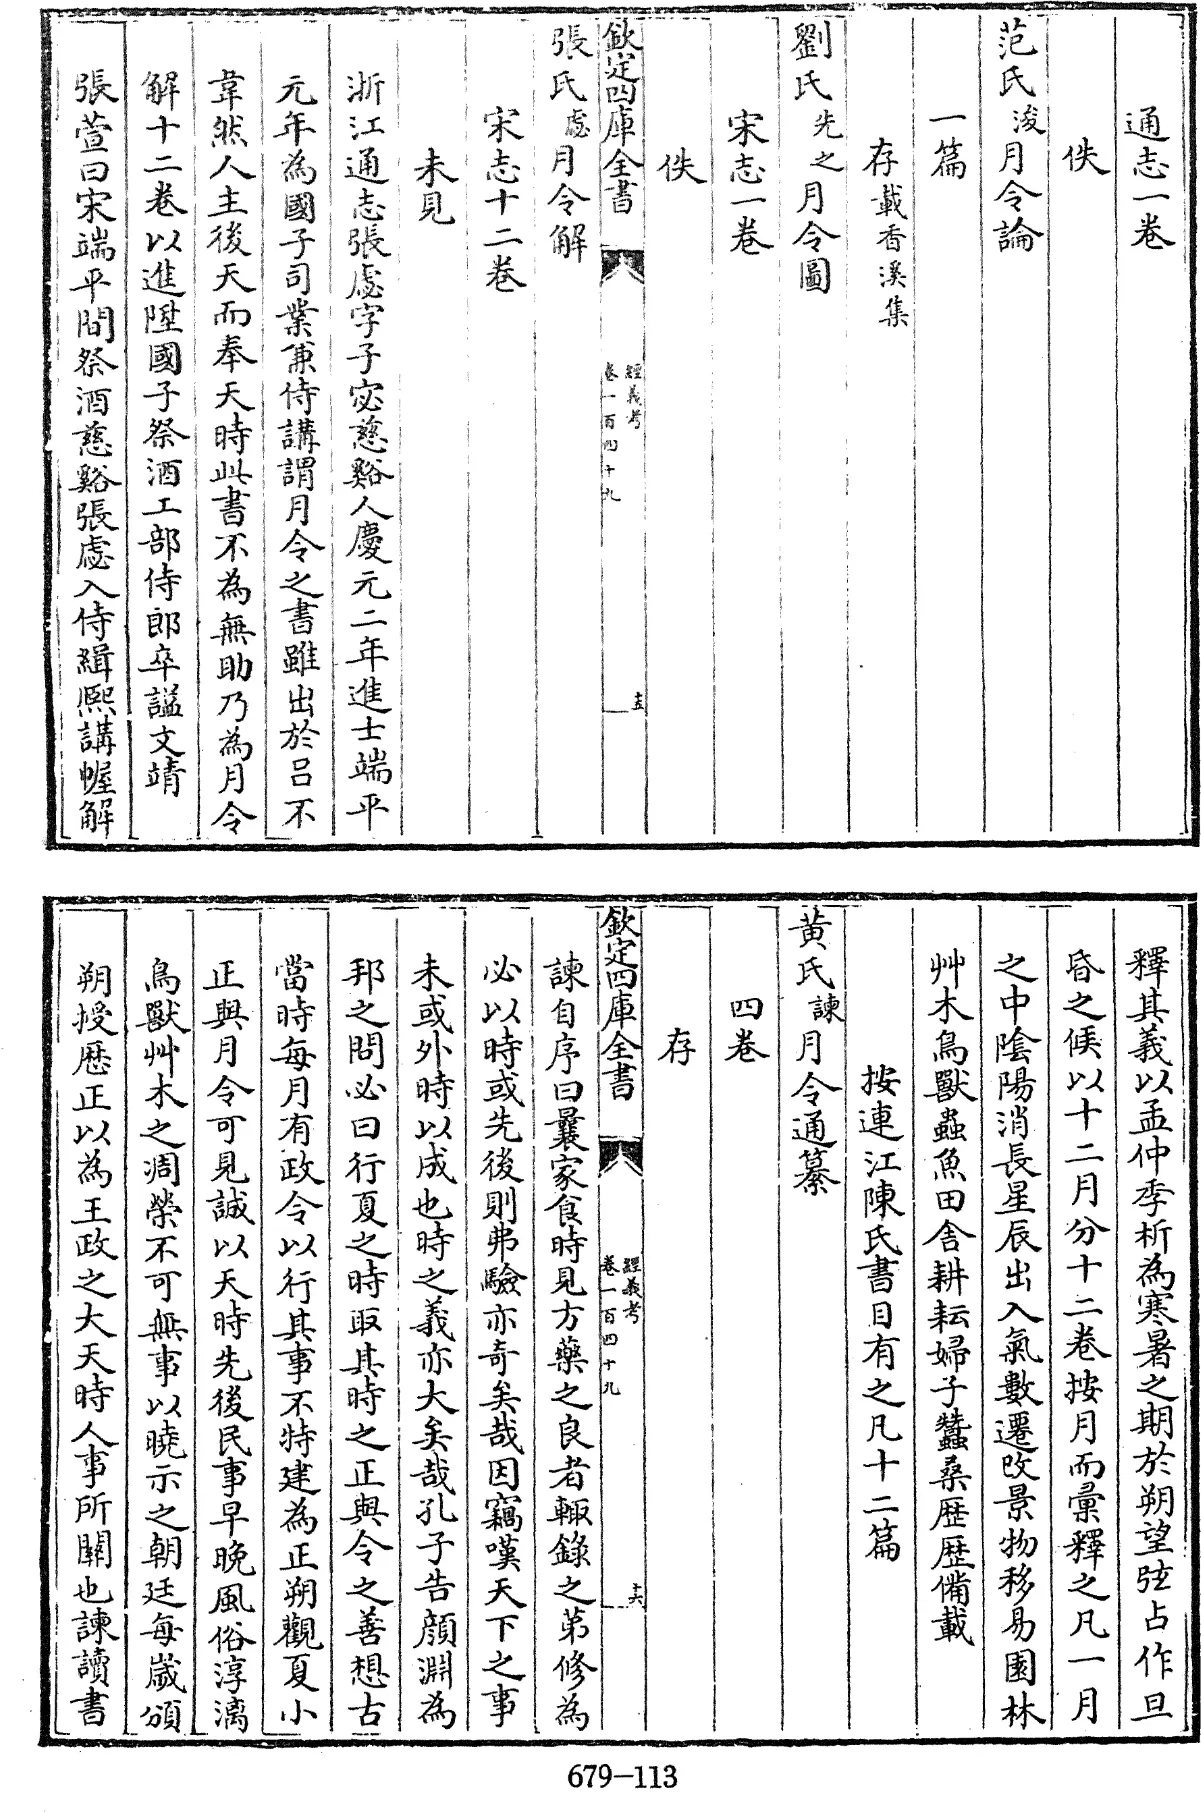 通志一卷
佚
范氏浚月令論
一篇
存載香溪集
劉氏先之月令圖
宋志一卷
佚
欽定四庫全書
經義考
卷一百四十九
十五
張氏虙月令解
宋志十二卷
未見
浙江通志張虙字子宓慈谿人慶元二年進士端平
元年為國子司業兼侍講謂月令之書雖出於呂不
韋然人主後天而奉天時此書不為無助乃為月令
解十二卷以進陞國子祭酒工部侍郎卒謚文靖
張萱曰宋端平間祭酒慈谿張虙入侍緝熙講幄解
釋其義以孟仲季析為寒暑之期於朔望弦占作旦
昏之候以十二月分十二卷按月而彙釋之凡一月
之中陰陽消長星辰出入氣數遷改景物移易園林
艸木鳥獸蟲魚田舎耕耘婦子蠶桑歴歴備載
按連江陳氏書目有之凡十二篇
黄氏諫月令通纂
四卷
存
欽定四庫全書
經義考
卷一百四十九
十六
諫自序曰曩家食時見方藥之良者輙錄之第修為
必以時或先後則弗驗亦奇矣哉因竊嘆天下之事
未或外時以成也時之義亦大矣哉孔子告顔淵為
邦之問必曰行夏之時取其時之正與令之善想古
當時每月有政令以行其事不特建為正朔觀夏小
正與月令可見誠以天時先後民事早晚風俗淳漓
鳥獸艸木之凋榮不可無事以曉示之朝廷每嵗頒
朔授歴正以為王政之大天時人事所關也諫讀書
679-113